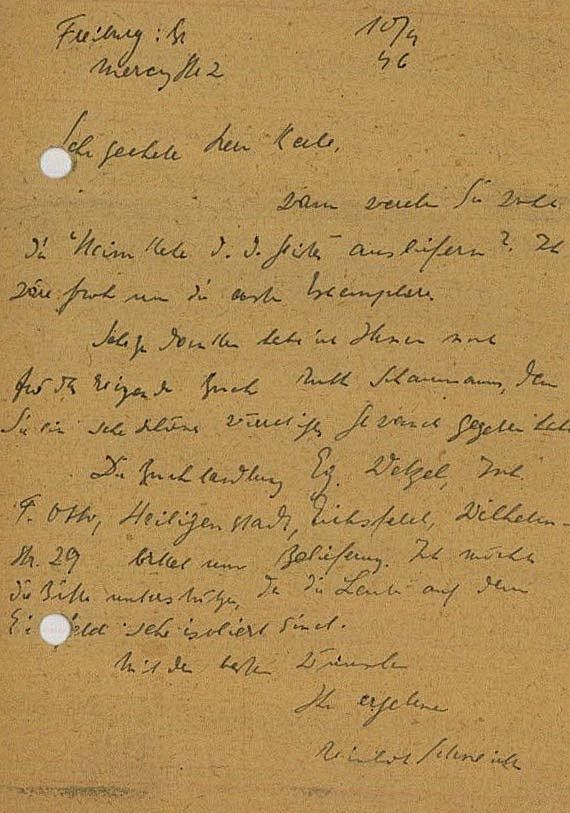 Freiburg i. Br
Mercystr 2
10/4
46
Sehr geehrter Herr Kerle,
Wann werden Sie wohl
die "Heimkehr d. d. Geistes" ausliefern? Ich
wäre froh um die ersten Exemplare.
danken habe ich Ihnen noch
für das reizende Buch Ruth Schaumanns, dem
Sie ein sehr schönes würdiges Gewand gegeben haben
Die Buchhandlung Eg. Wetzel, Inh.
F. Otto, Heiligenstadt, Eichsfeld, Wilhelm-
str. 29 bittet um Belieferung. Ich möchte
die Bitte unterstützen, da die Leute auf dem
Ei feld sehr isoliert sind.
Mit den besten Wünschen
Ihr ergebener
Reinhold Schneider